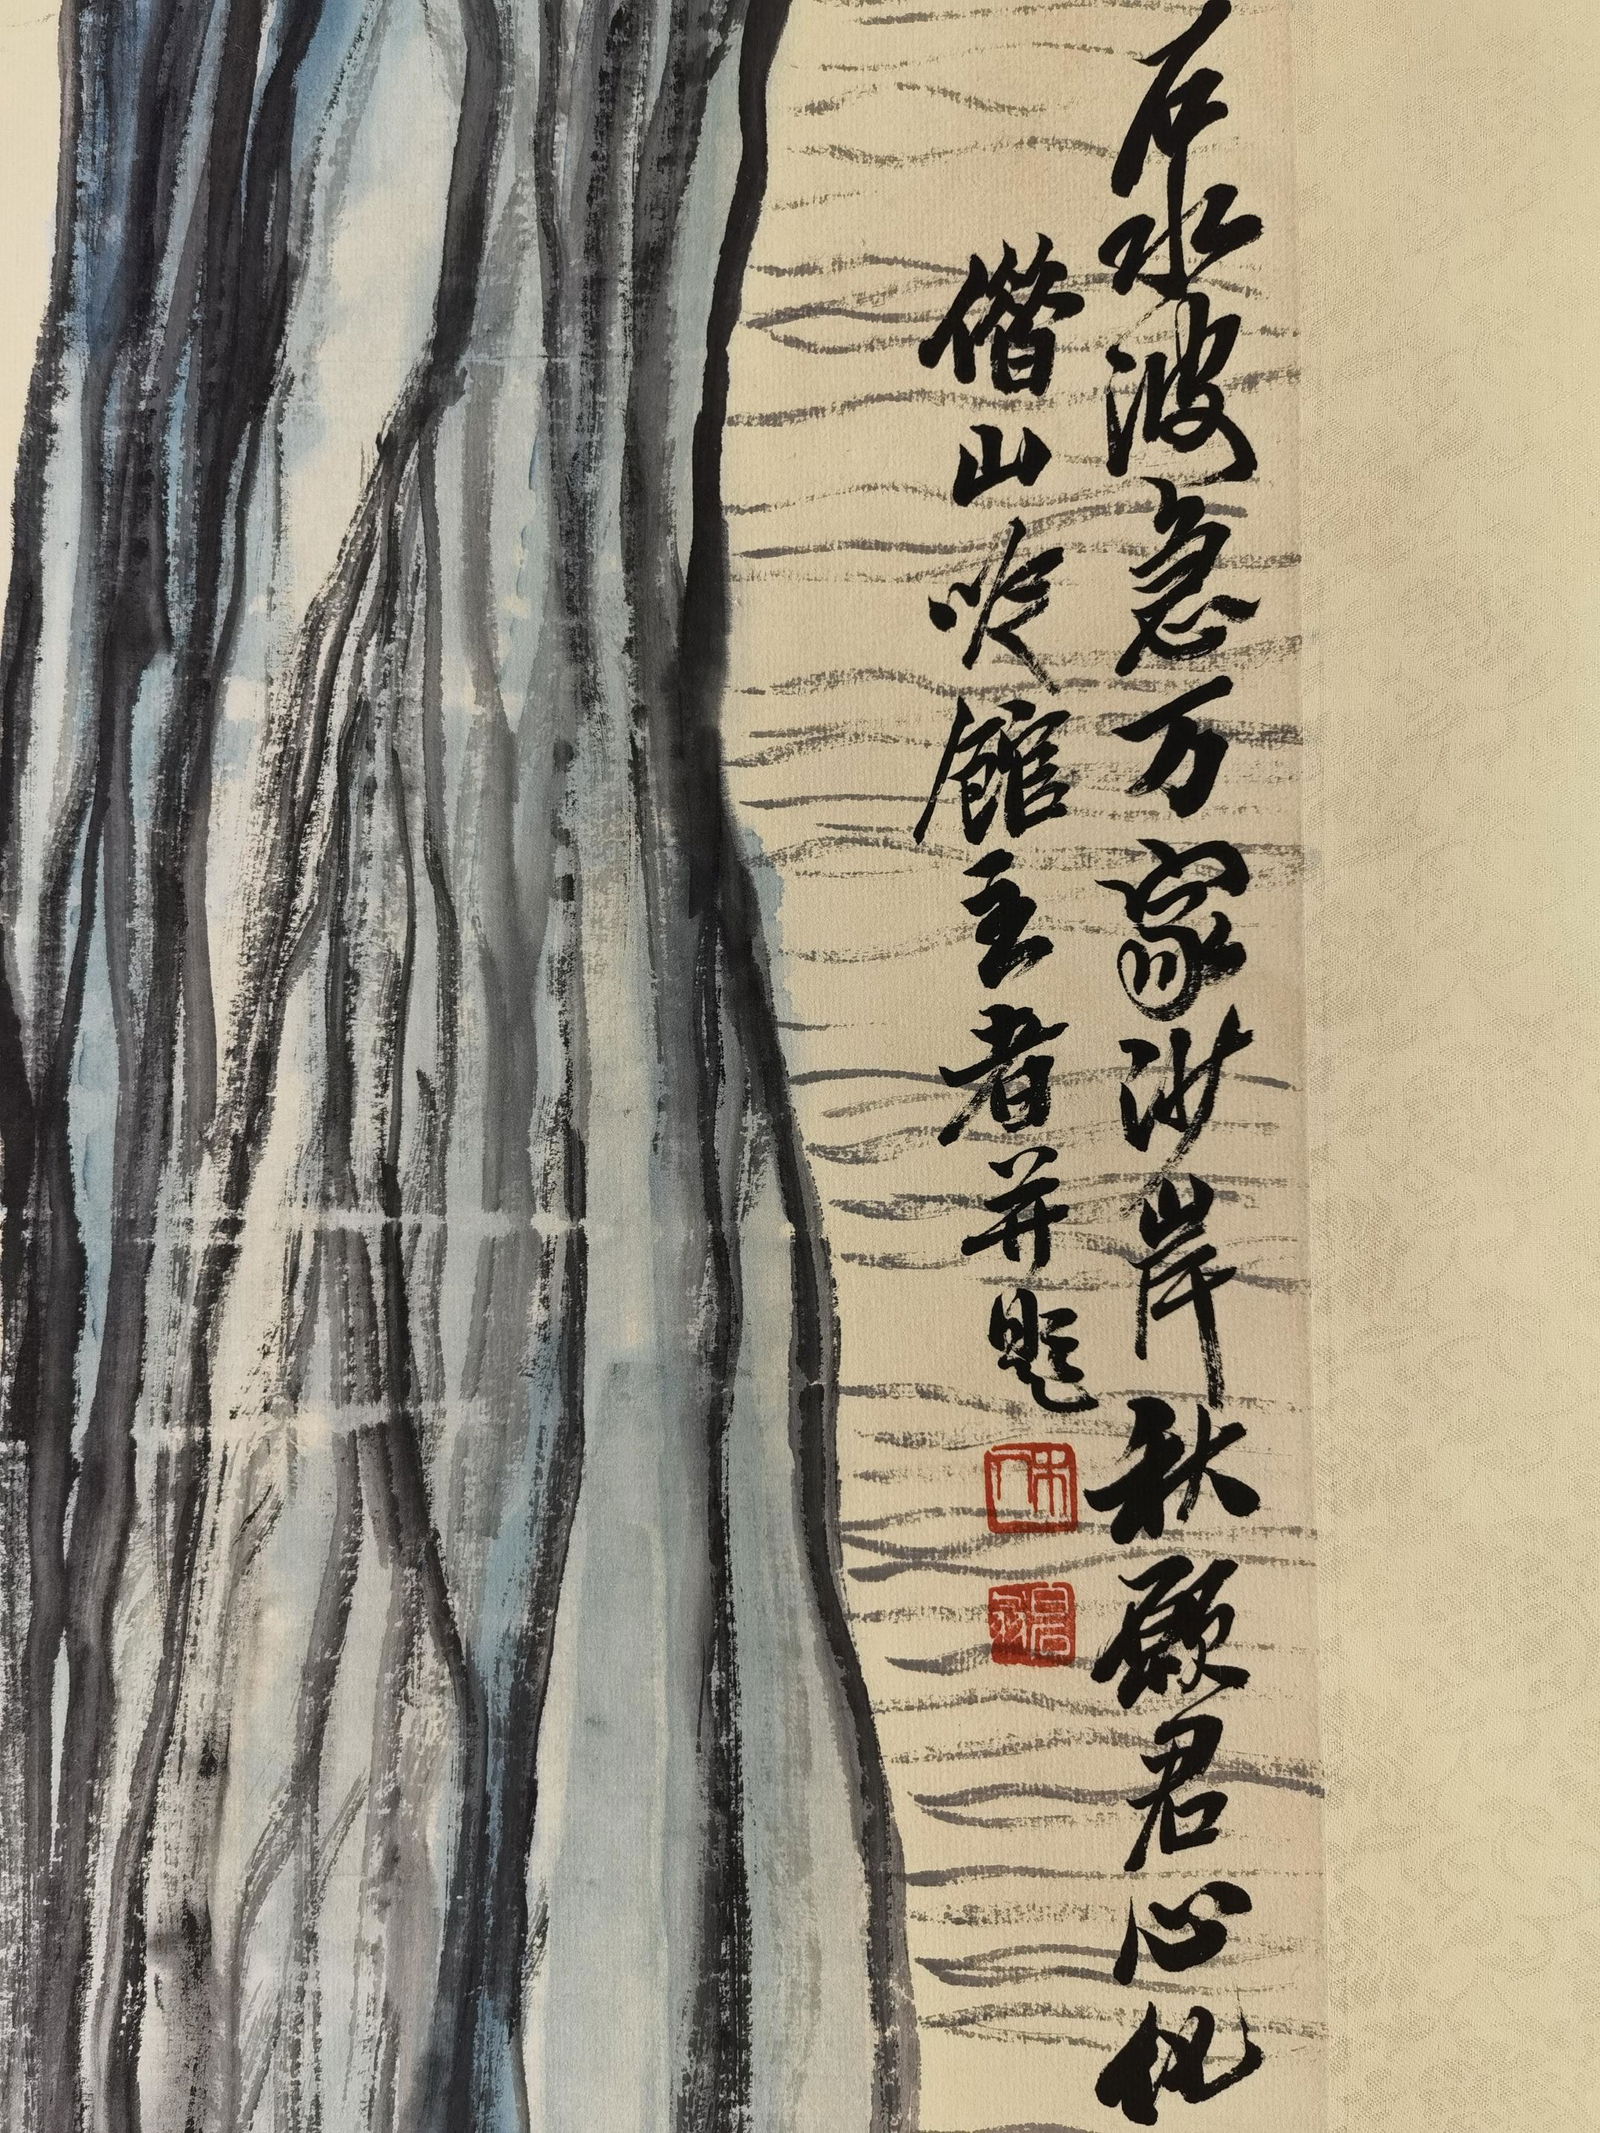 石水波急万家沙岸秋願君心
借山吟館主者并題
木人